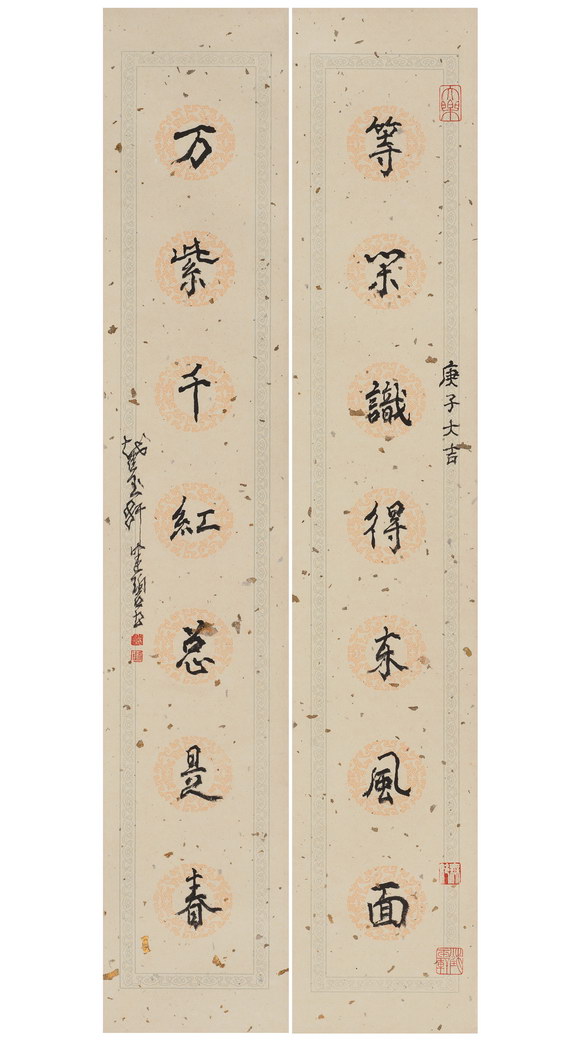 庚子大吉
等闲識得东風面
万紫千紅总是春